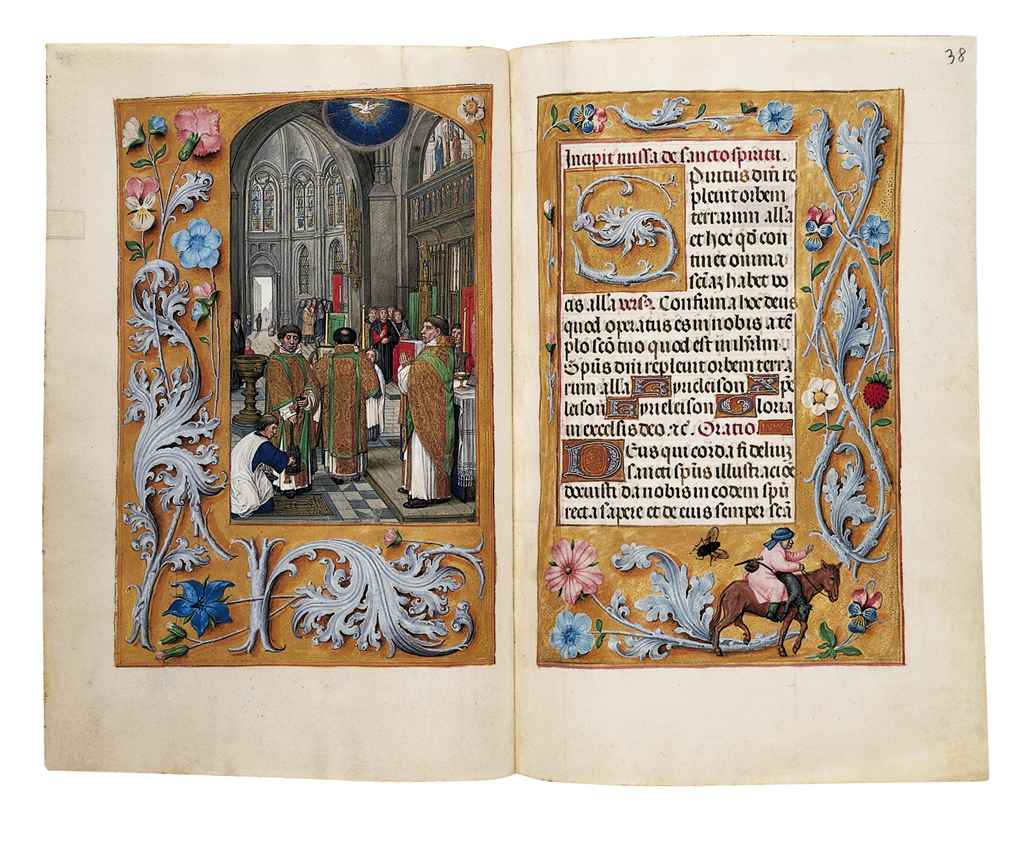 38
Incipit missa de sancto spiritu.
Spiritus dñi re
pleuit orbem
terrarum alľa
et hoc qd̄ con
tinet omnia
scīaꝫ habet vo
cis alľa vers. Confirma hoc deus
quod operatus es in nobis a tē
plo scō tuo quod est in ihrľm.
Spūs dñi repleuit orbem terra
rum alľa Kyrieleison Xp̄e
leison Kyrieleison Gloria
in excelsis deo. ⁊c̄. Oratio
Deus qui corda fideliuꝫ
sancti spūs illustracōe
docuisti da nobis in eodem spū
recta sapere et de eius semper scā